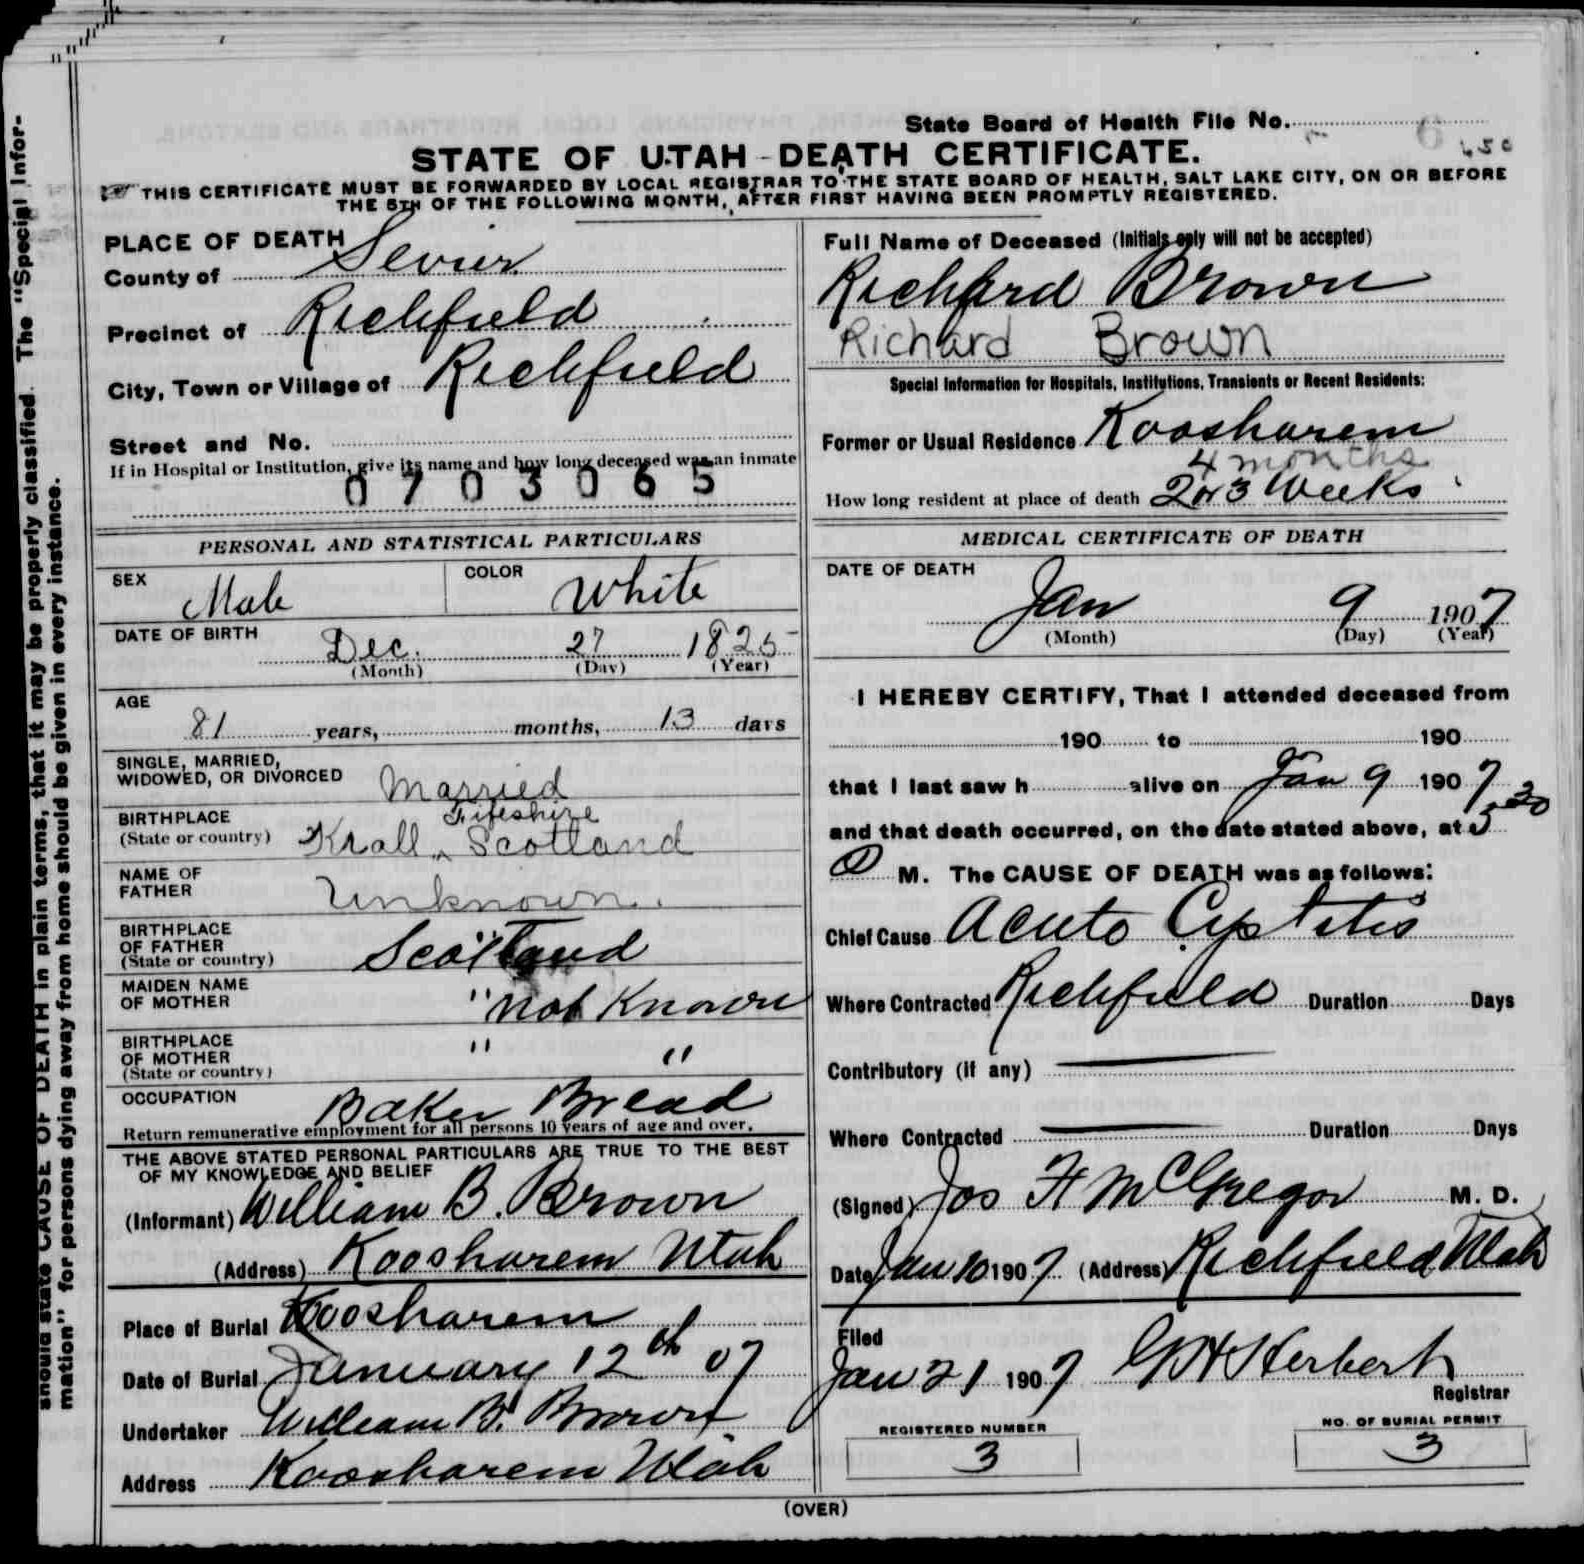 should state CAUSE OF DEATH in plain terms, that it may be properly classified. The "Special Infor-
mation" for persons dying away from home should be given in every instance.
State Board of Health File No.
STATE OF UTAH - DEATH CERTIFICATE.
THIS CERTIFICATE MUST BE FORWARDED BY LOCAL REGISTRAR TO THE STATE BOARD OF HEALTH, SALT LAKE CITY, ON OR BEFORE
THE 5TH OF THE FOLLOWING MONTH, AFTER FIRST HAVING BEEN PROMPTLY REGISTERED.
PLACE OF DEATH
County of Sevier
Precinct of Richfield
City, Town or Village of Richfield
Street and No.
If in Hospital or Institution, give its name and how long deceased was an inmate
0703065
PERSONAL AND STATISTICAL PARTICULARS
SEX Male COLOR White
DATE OF BIRTH Dec. 27 1825
(Month) (Day) (Year)
AGE
81 years, months, 13 days
SINGLE, MARRIED,
WIDOWED, OR DIVORCED Married
BIRTHPLACE Fifeshire
(State or country) Krall ^ Scotland
NAME OF
FATHER Unknown.
BIRTHPLACE
OF FATHER Scotland
(State or country)
MAIDEN NAME
OF MOTHER " not Known
BIRTHPLACE
OF MOTHER " "
(State or country)
OCCUPATION Baker Bread
Return remunerative employment for all persons 10 years of age and over.
THE ABOVE STATED PERSONAL PARTICULARS ARE TRUE TO THE BEST
OF MY KNOWLEDGE AND BELIEF
(Informant) William B. Brown
(Address) Koosharem Utah
Place of Burial Koosharem
Date of Burial January 12th 07
Undertaker William B. Brown
Address Koosharem Utah
Full Name of Deceased (Initials only will not be accepted)
Richard Brown
Richard Brown
Special Information for Hospitals, Institutions, Transients or Recent Residents:
Former or Usual Residence Koosharem
4 months
How long resident at place of death 2 or 3 Weeks
MEDICAL CERTIFICATE OF DEATH
DATE OF DEATH
Jan 9 1907
(Month) (Day) (Year)
I HEREBY CERTIFY, That I attended deceased from
190 to 190
that I last saw h alive on Jan 9 1907
and that death occurred, on the date stated above, at 5.30
M. The CAUSE OF DEATH was as follows:
Chief Cause Acute Cystitis
Where Contracted Richfield Duration Days
Contributory (if any)
Where Contracted Duration Days
(Signed) Jos H McGregor M. D.
Date Jan 10 1907 (Address) Richfield Utah
Filed
Jan 21 1907 Herbert
Registrar
REGISTERED NUMBER
3
NO. OF BURIAL PERMIT
3
(OVER)